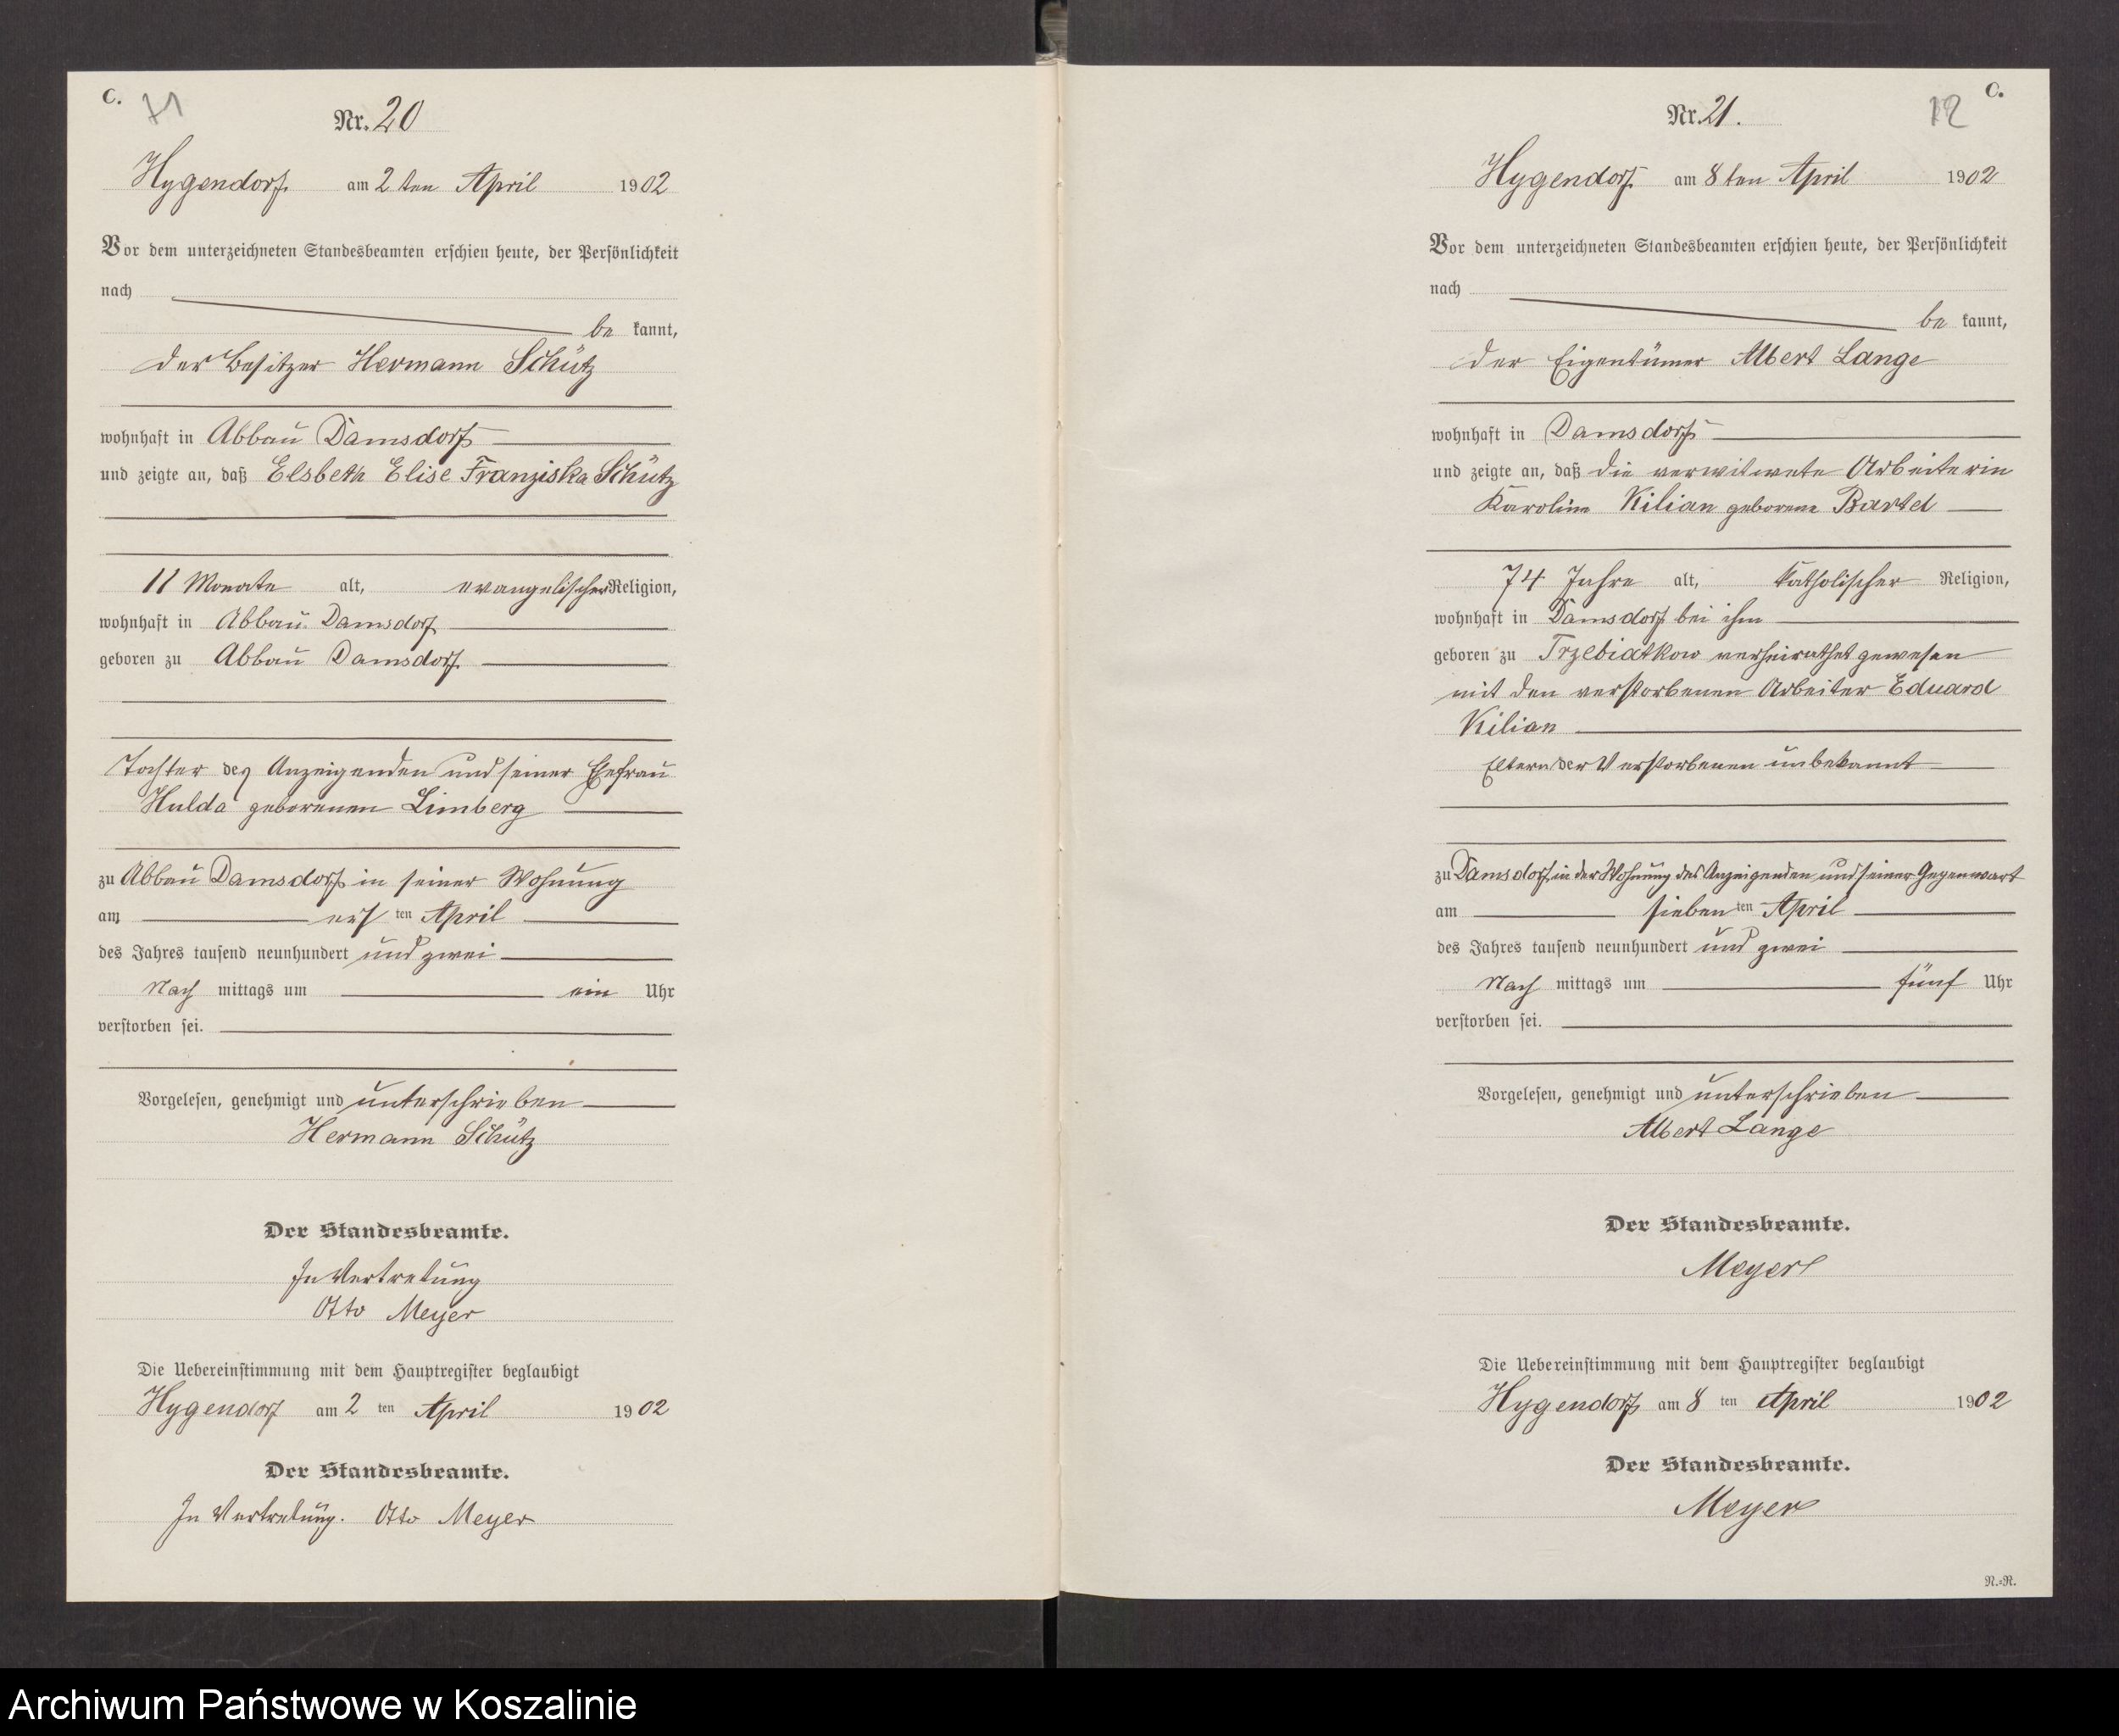 C.
71
Nr. 20
Hygendorf. am 2 ten April 1902
Vor dem unterzeichneten Standesbeamten erschien heute, der Persönlichkeit
nach
be kannt,
der Besitzer Hermann Schütz
wohnhaft in Abbau Damsdorf
und zeigte an, daß Elsbeth Elise Franziska Schütz
11 Monate alt, evangelischer Religion,
wohnhaft in Abbau Damsdorf
geboren zu Abbau Damsdorf.
Tochter des Anzeigenden und seiner Ehefrau
Hulda geborenen Limberg
zu Abbau Damsdorf in seiner Wohnung
am ers ten April
des Jahres tausend neunhundert und zwei
Nach mittags um ein Uhr
verstorben sei.
Vorgelesen, genehmigt und unterschrieben
Hermann Schütz
Der Standesbeamte.
In Vertretung
Otto Meyer
Die Uebereinstimmung mit dem Hauptregister beglaubigt
Hygendorf am 2 ten April 1902
Der Standesbeamte.
In Vertretung. Otto Meyer
C.
12
Nr. 21.
Hygendorf. am 8 ten April 1902
Vor dem unterzeichneten Standesbeamten erschien heute, der Persönlichkeit
nach
be kannt,
der Eigentümer Albert Lange
wohnhaft in Damsdorf
und zeigte an, daß die verwitwete Arbeiterin
Karoline Kilian geborene Bartel
74 Jahre alt, katholischer Religion,
wohnhaft in Damsdorf bei ihm
geboren zu Trzebiatkow verheirathet gewesen
mit den verstorbenen Arbeiter Eduard
Kilian
Eltern der Verstorbenen unbekannt
zu Damsdorf, in der Wohnung des Anzeigenden und seiner Gegenwart
am sieben ten April
des Jahres tausend neunhundert und zwei
Nach mittags um fünf Uhr
verstorben sei.
Vorgelesen, genehmigt und unterschrieben
Albert Lange
Der Standesbeamte.
Meyer
Die Uebereinstimmung mit dem Hauptregister beglaubigt
Hygendorf am 8 ten April 1902
Der Standesbeamte.
Meyer
R.=R.
Archiwum Państwowe w Koszalinie